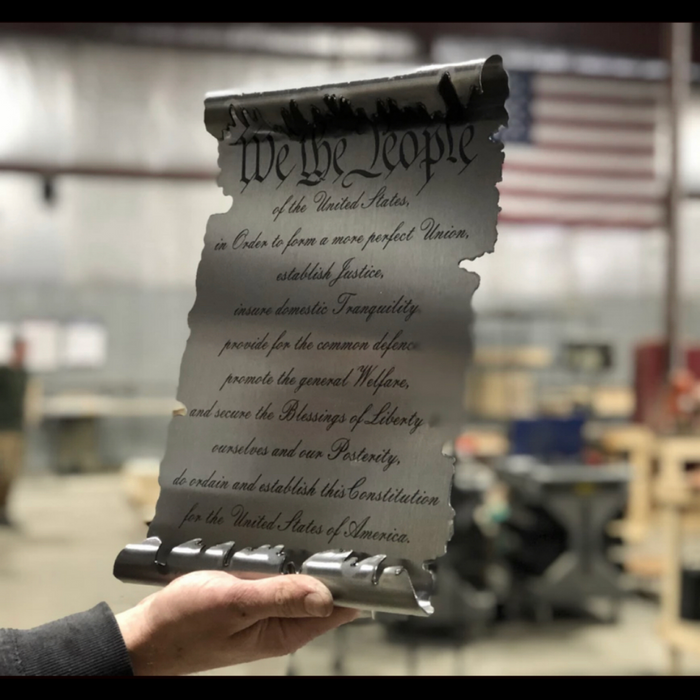 We the People
of the United States,
in Order to form a more perfect Union,
establish Justice,
insure domestic Tranquility
provide for the common defence
promote the general Welfare,
and secure the Blessings of Liberty
ourselves and our Posterity,
do ordain and establish this Constitution
for the United States of America.